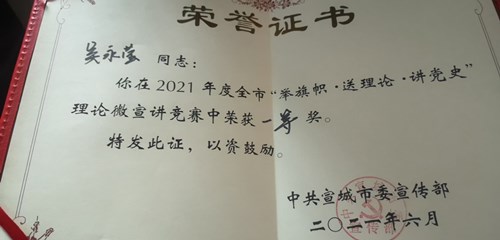 荣誉证书
吴永莹 同志：
你在2021年度全市“举旗帜·送理论·讲党史”
理论微宣讲竞赛中荣获一等奖。
特发此证，以资鼓励。
中共宣城市委宣传部
二〇二一年六月